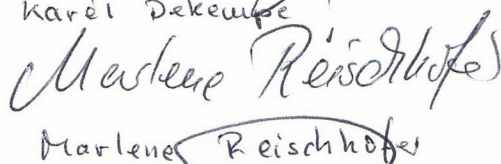 Karel Dekempe
Marlene Reischhofer
Marlene Reischhofer